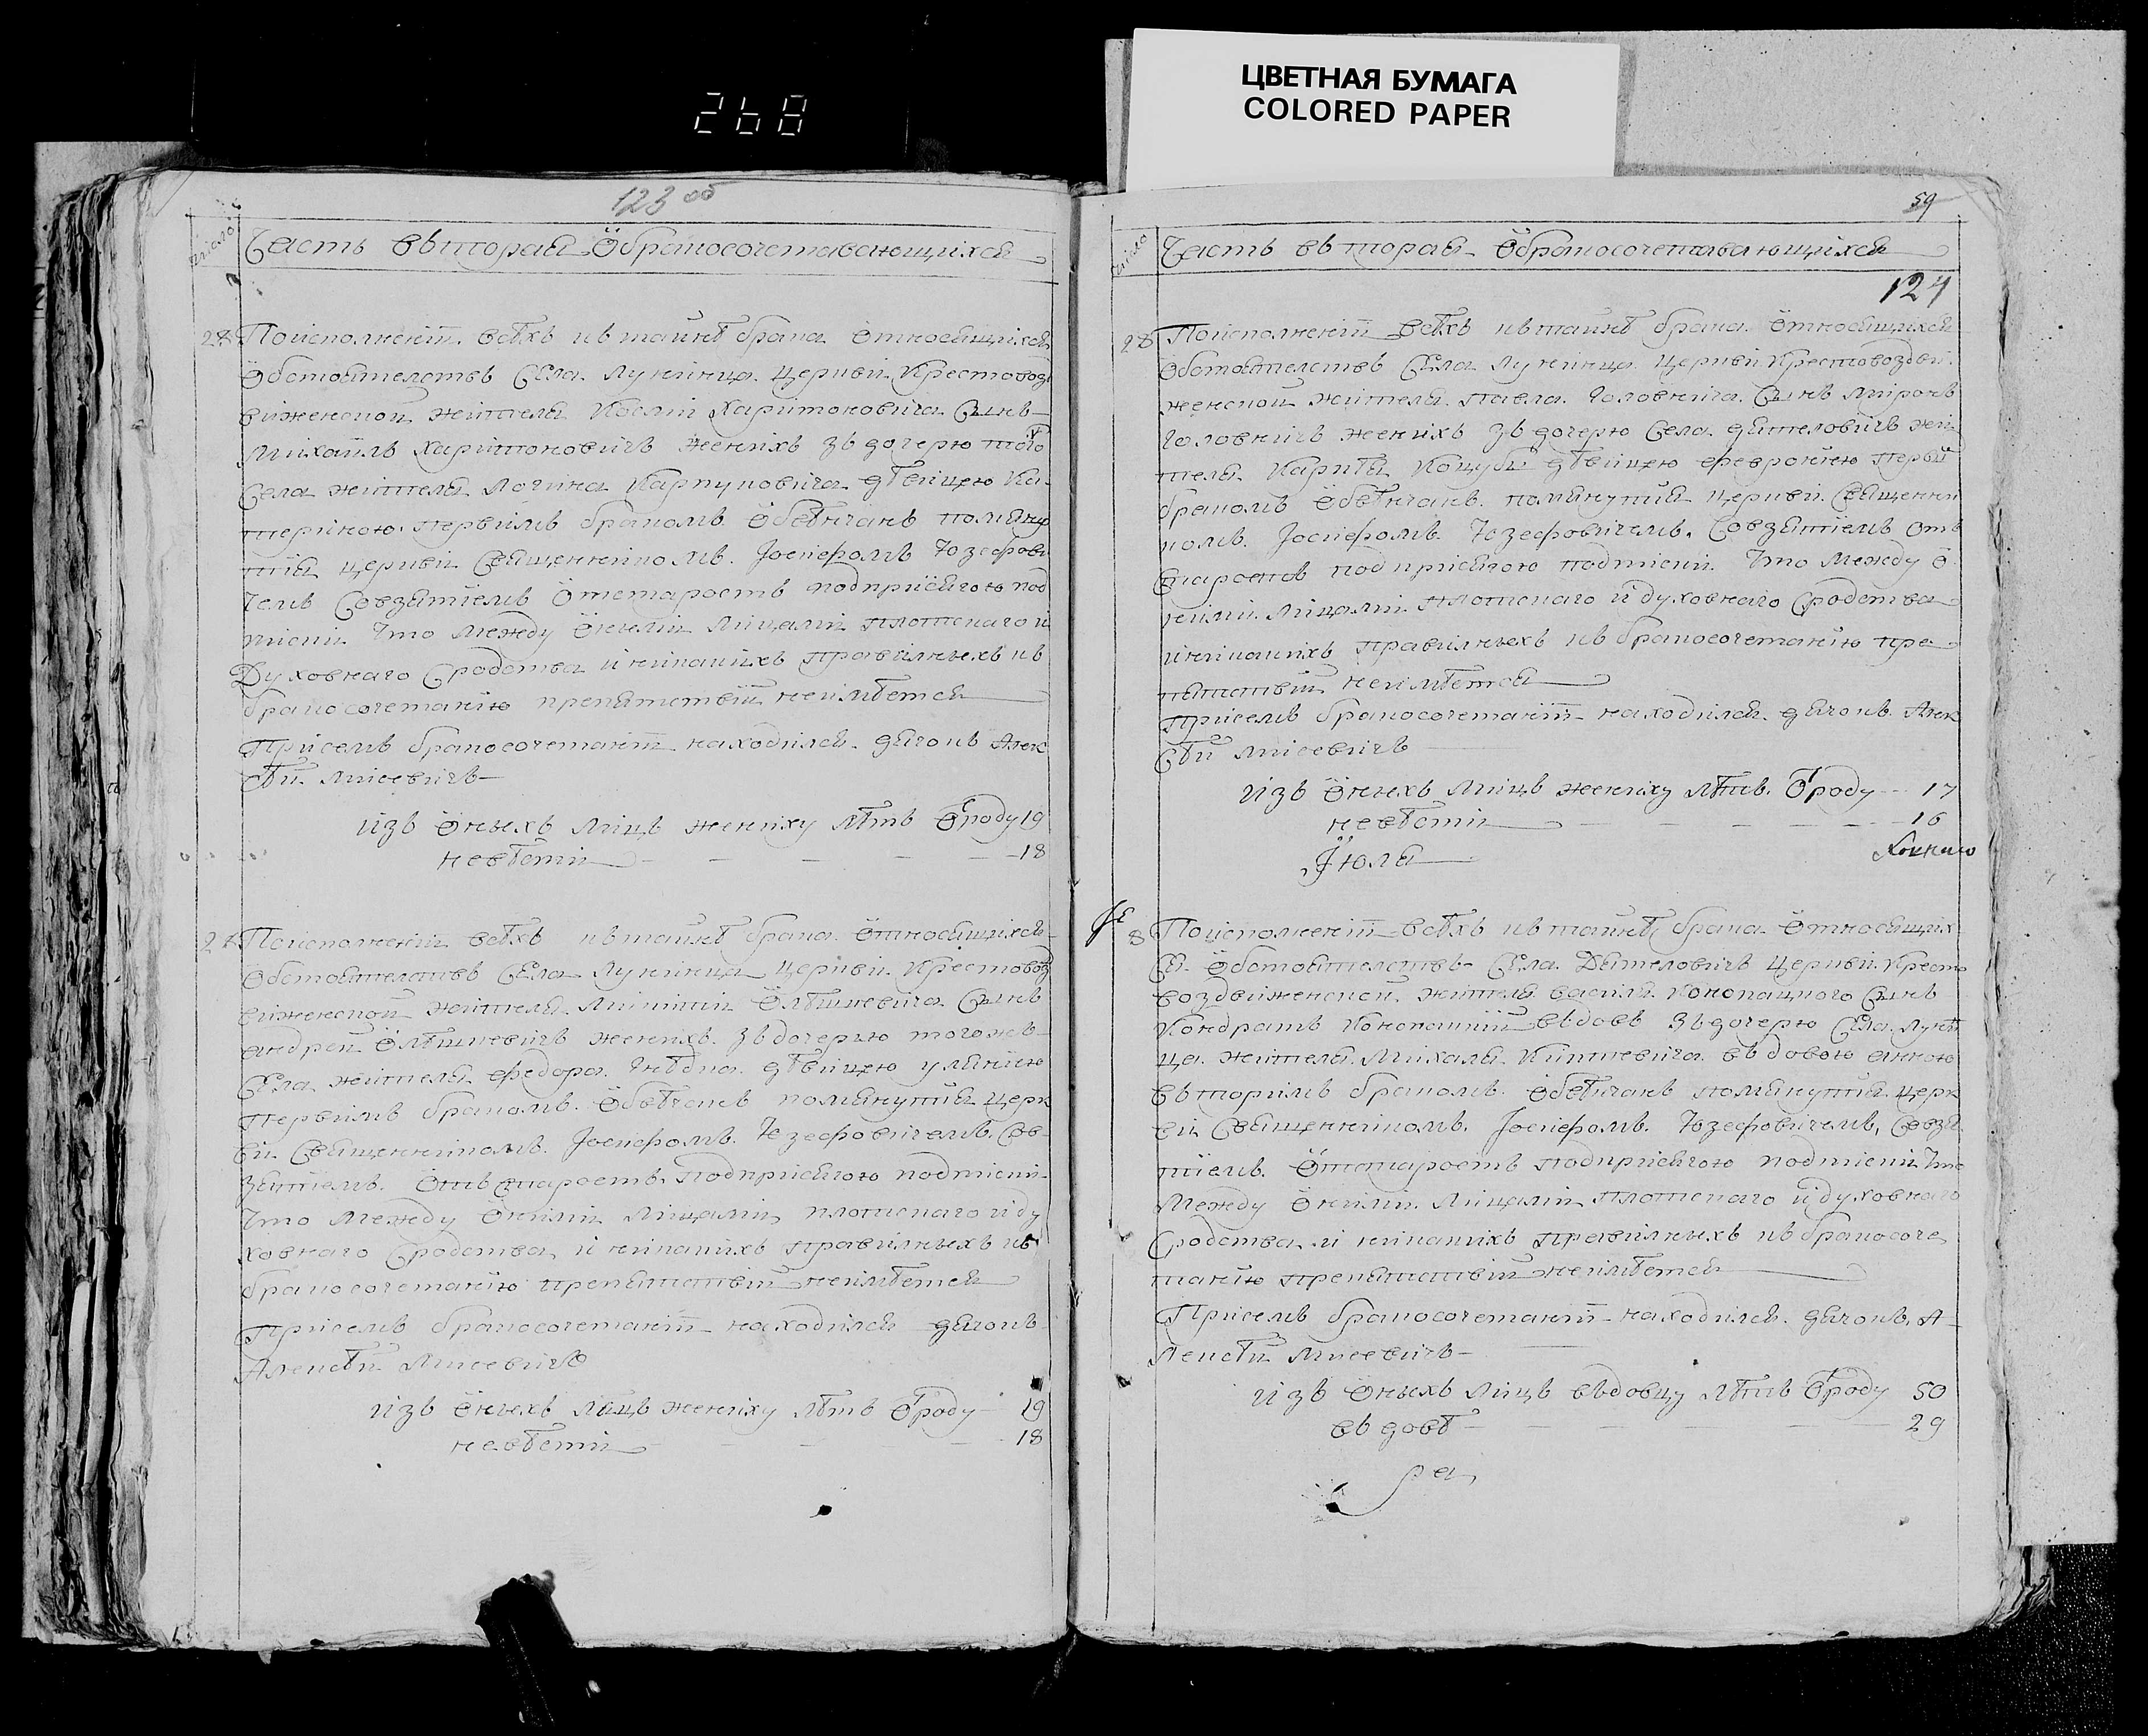 ЦВЕТНАЯ БУМАГА
COLORED PAPER
268
123 об
число
Часть вьторая Обракосочетавающихся
28 Поисполнении всѣхъ къ тайнѣ брака Относящихся
Обстоятелствъ Села Лунинца Церкви Крестовоз
виженской жителя Космы Харитоновича Сынъ
Михаилъ Харитоновичъ женихъ зъ дочерю того
Села жителя Логина Карпуковича дѣвицею Ка
териною первимъ бракомъ Обвѣнчанъ помяну
тия церкви Священникомъ Іосифомъ Юзефови
чемъ Совзятіемъ Отстаростъ подприсягою под
писки Что Между Оними лицами плотскаго и
Духовнаго Сродства и никакихъ правилныхъ къ
бракосочетанию препятствий неимѣется
Присемъ бракосочетании находился дячокъ Алек
сѣй Мисевичъ
Изъ Оныхъ лицъ жениху лѣтъ Отроду 19
невѣсти 18
Поисполнении всѣхъ къ тайнѣ брака Относящихся
Обстоятелствъ Села Лунинца Церкви Крестовоз
виженской жителя Микиты Олѣшкевича Сынъ
андрей Олѣшкевичъ женихъ зъ дочерью тогожъ
Села жителя федора Гнѣдка дѣвицею улянию
первимъ бракомъ Обвѣнчанъ помянутия церк
ви Священникомъ Іосифомъ Юзефовичемъ Сов
зятіемъ Отъ старостъ подприсягою подписки
Что Между Оними лицами плотскаго и ду
ховнаго Сродства и никакихъ правилныхъ къ
бракосочетанию препятствий неимѣется
Присемъ бракосочетании находился дячокъ
Алексѣй Мисевичъ
Изъ Оныхъ лицъ жениху лѣтъ Отроду 19
невѣсти 18
59
число
Часть вьторая Обракосочетавающихся
124
28 Поисполнении всѣхъ къ тайнѣ брака Относящихся
Обстоятелствъ Села Лунинца Церкви Крестовоздви
женской жителя Павла Головнича Сынъ Миронъ
Головничъ женихъ зъ дочерю Села дятеловичъ жи
теля Карпа Коцубы дѣвицею февронию первий
бракомъ Обвѣнчанъ помянутия церкви Священни
комъ Іосифомъ Юзефовичемъ Совзятіемъ Отъ
старостъ подприсягою подписки Что Между О
ними лицами плотскаго и духовнаго Сродства
и никакихъ правилныхъ къ бракосочетанию пре
пятствий неимѣется
Присемъ бракосочетании находился дячокъ Алек
Сѣй Мисевичъ
Изъ Оныхъ лицъ жениху лѣтъ Отроду 17
невѣсти 16
Июля
8 Поисполнении всѣхъ къ тайнѣ брака Относящих
ся Обстоятелствъ Села Дятеловичъ Церкви Кресто
воздвиженской жителя василя Конопацкого Сынъ
Кондратъ Конопацкий вьдовъ зъ дочерю Села Луни
ца жителя Михаля Кипкевича вьдовою анною
вьторимъ бракомъ Обвѣнчанъ помянутия церк
ви Священникомъ Іосифомъ Юзефовичемъ Совзя
тіемъ Отстаростъ подприсягою подписки Что
Между Оними лицами плотскаго и духовнаго
Сродства и никакихъ правилныхъ къ бракосоче
танию препятствий неимѣется
Присемъ бракосочетании находился дячокъ А
лексѣй Мисевичъ
Изъ Оныхъ лицъ вьдовцу лѣтъ Отроду 50
вьдовѣ 29